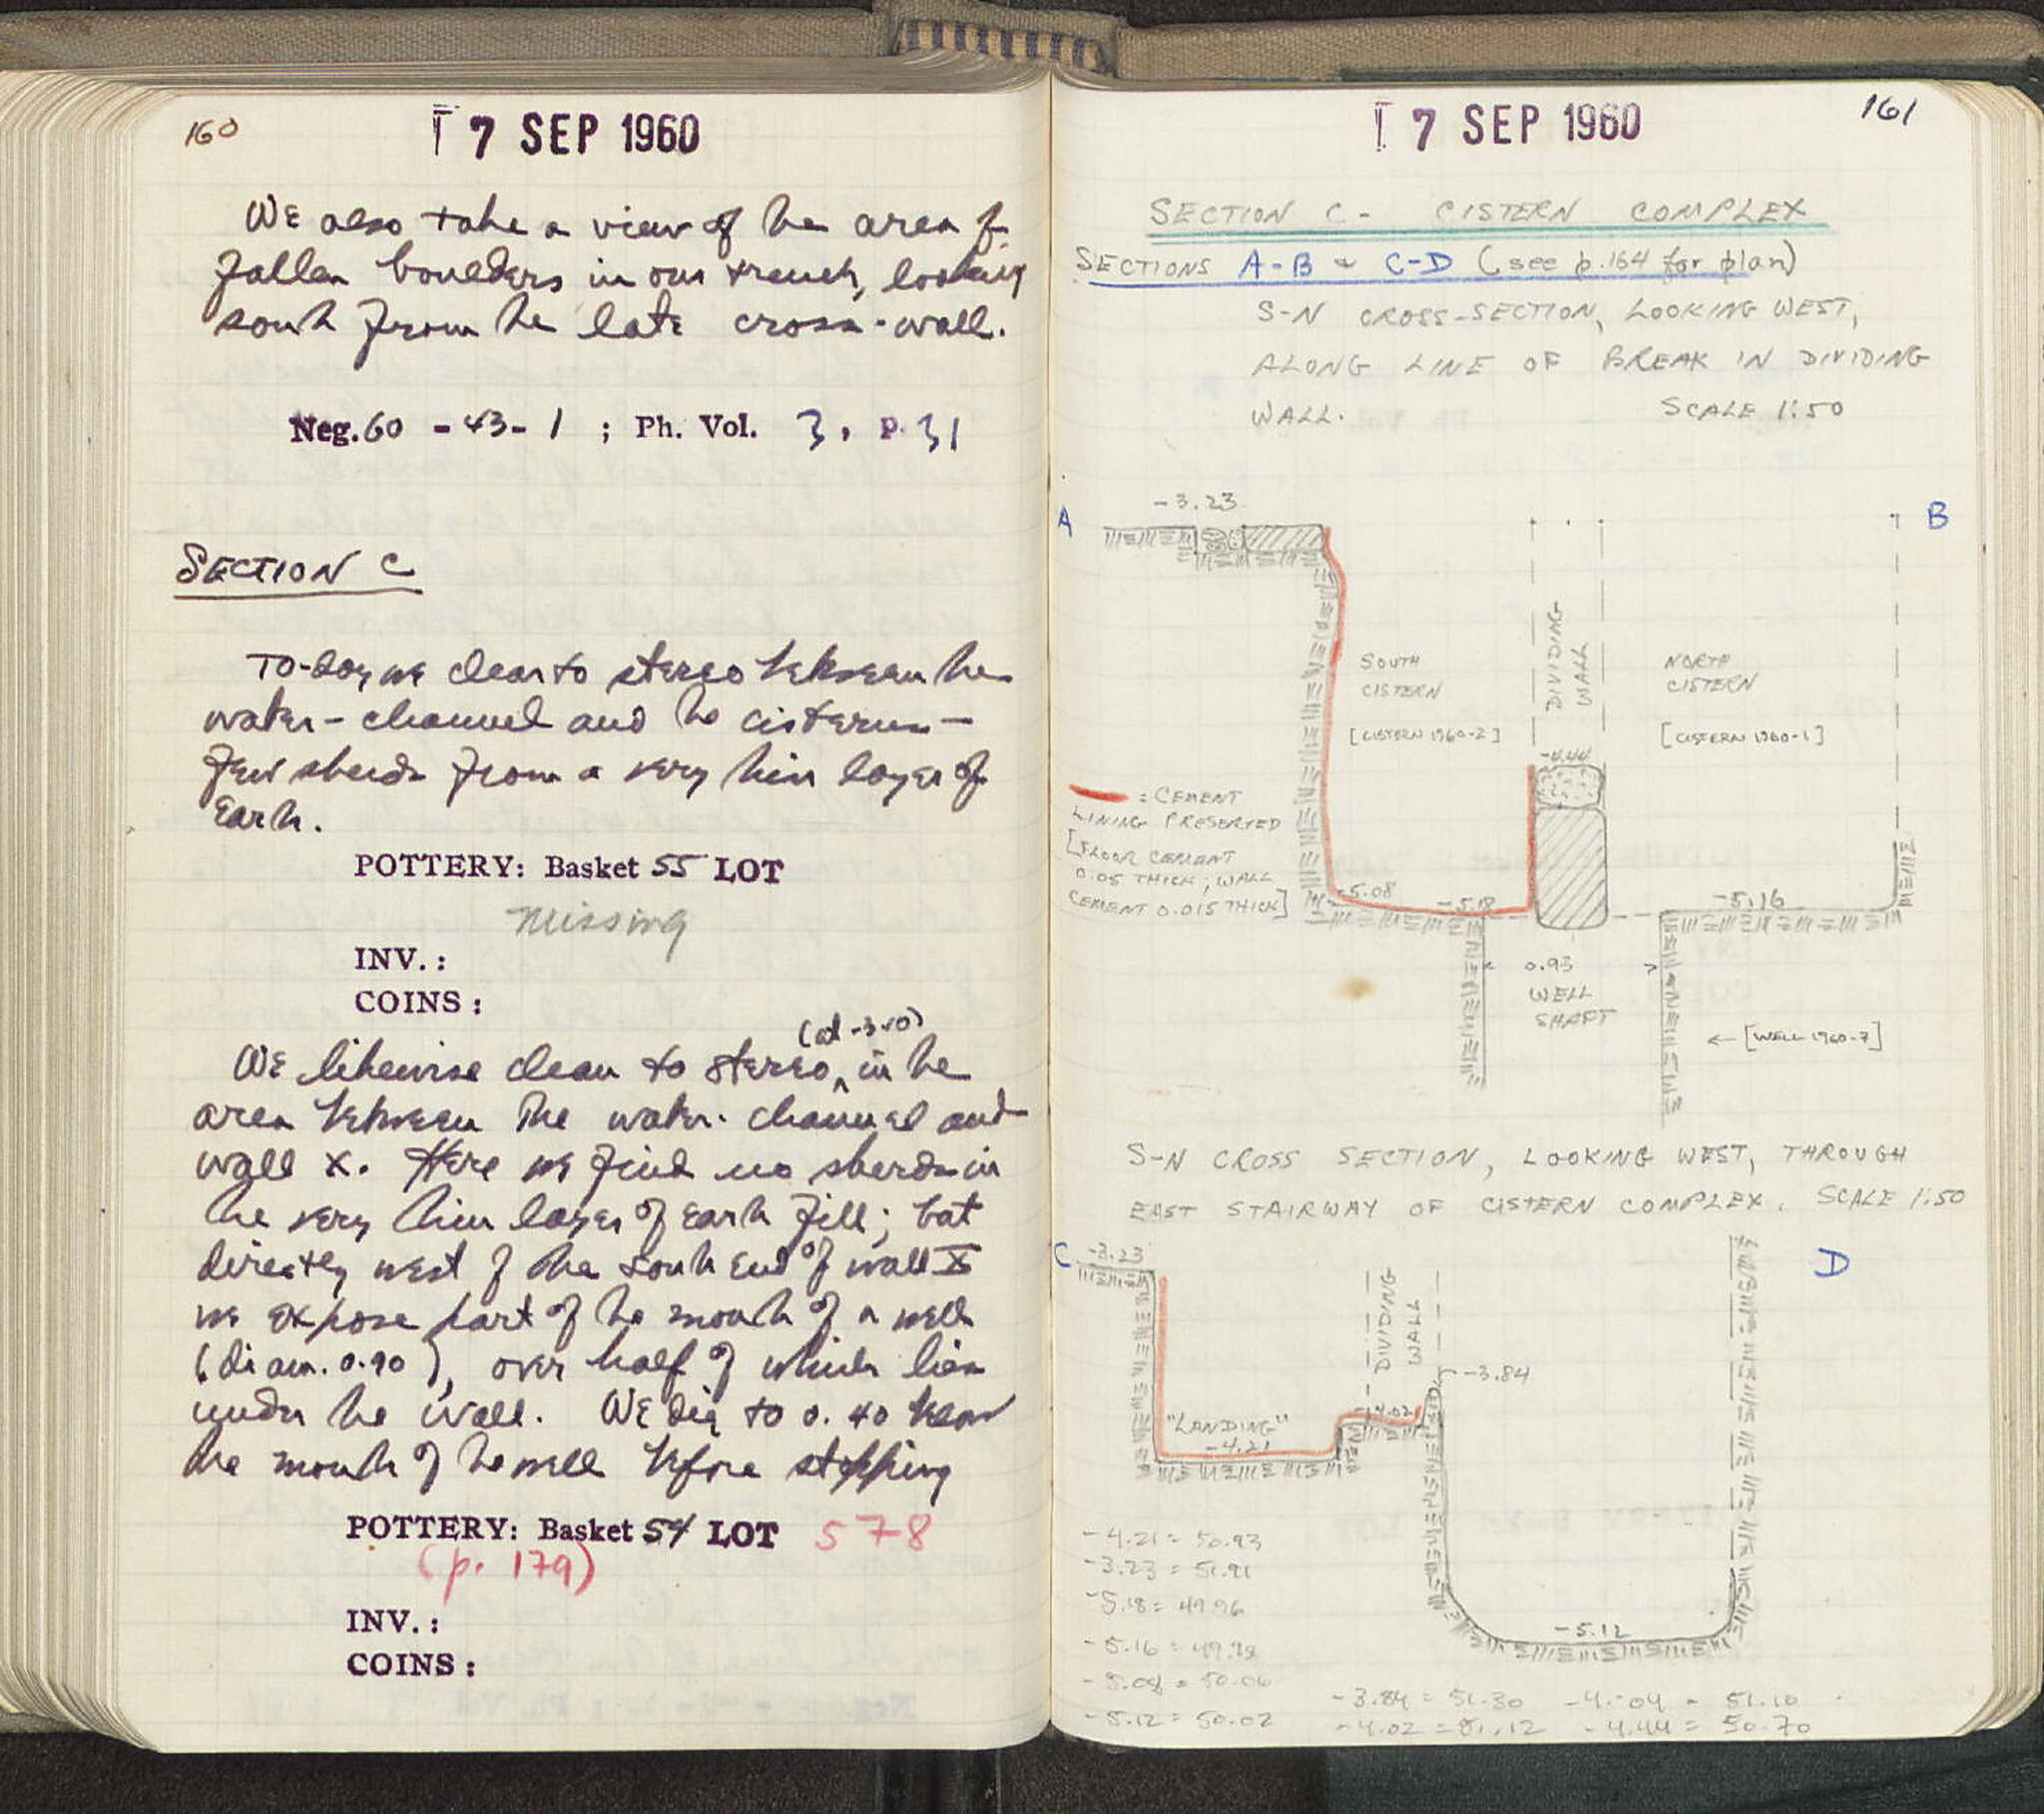 160
7 SEP 1960
We also take a view of he area of
fallen boulders in our trench, looking
south from he late cross-wall.
Neg. 60 - 43 - 1 ; Ph. Vol. 3, p. 31
SECTION C
To-day we clear to stereo between he
water-channel and he cisterns –
few sherds from a very thin layer of
Earth.
POTTERY: Basket 55 LOT
Missing
INV. :
COINS :
(at -3.10)
We likewise clean to stereo ^ in he
area between The water-channel and
wall X. Here we find no sherds in
he very thin layer of Earth fill; but
directly west of the south End of wall X
we expose part of he mouth of a well
(diam. 0.90), over half of which lies
under he wall. We dig to 0.40 below
the mouth of he well before stopping
POTTERY: Basket 54 LOT 578
(p. 179)
INV. :
COINS :
161
7 SEP 1960
SECTION C - CISTERN COMPLEX
SECTIONS A-B & C-D (see p.164 for plan)
S-N CROSS-SECTION, LOOKING WEST,
ALONG LINE OF BREAK IN DIVIDING
WALL. SCALE 1:50
-3.23
A
B
DIVIDING
WALL
SOUTH
CISTERN
[CISTERN 1960-2]
NORTH
CISTERN
[CISTERN 1960-1]
-4.44
: CEMENT
LINING PRESERVED
[FLOOR CEMENT
0.05 THICK; WALL
CEMENT 0.015 THICK]
-5.08
-5.18
-5.16
0.93
WELL
SHAFT
← [WELL 1960-7]
S-N CROSS SECTION, LOOKING WEST, THROUGH
EAST STAIRWAY OF CISTERN COMPLEX. SCALE 1:50
C
-3.23
D
DIVIDING
WALL
-3.84
-4.02
"LANDING"
-4.21
-5.12
-4.21 = 50.93
-3.23 = 51.91
-5.18 = 49.96
-5.16 = 49.98
-5.08 = 50.06
-5.12 = 50.02
-3.84 = 51.30 -4.04 = 51.10
-4.02 = 51.12 -4.44 = 50.70